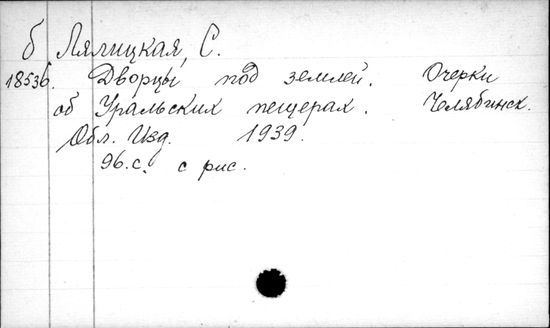 б Лялицкая, С.
18536. Дворцы под землей. Очерки
об Уральских пещерах. Челябинск.
Обл. Изд. 1939.
96.с. с рис.